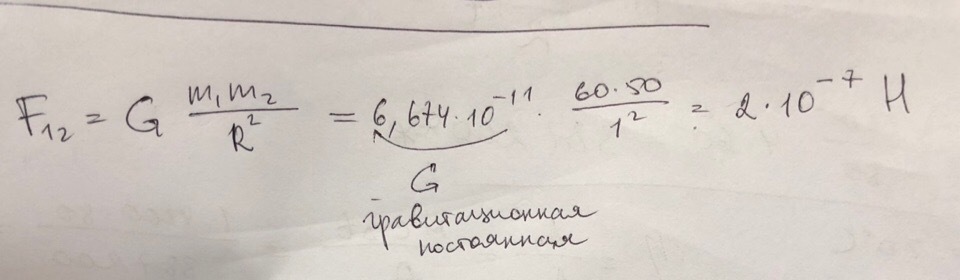 F₁₂ = G m₁m₂/R² = 6,674·10⁻¹¹ · 60·50/1² = 2·10⁻⁷ Н
G
гравитационная
постоянная